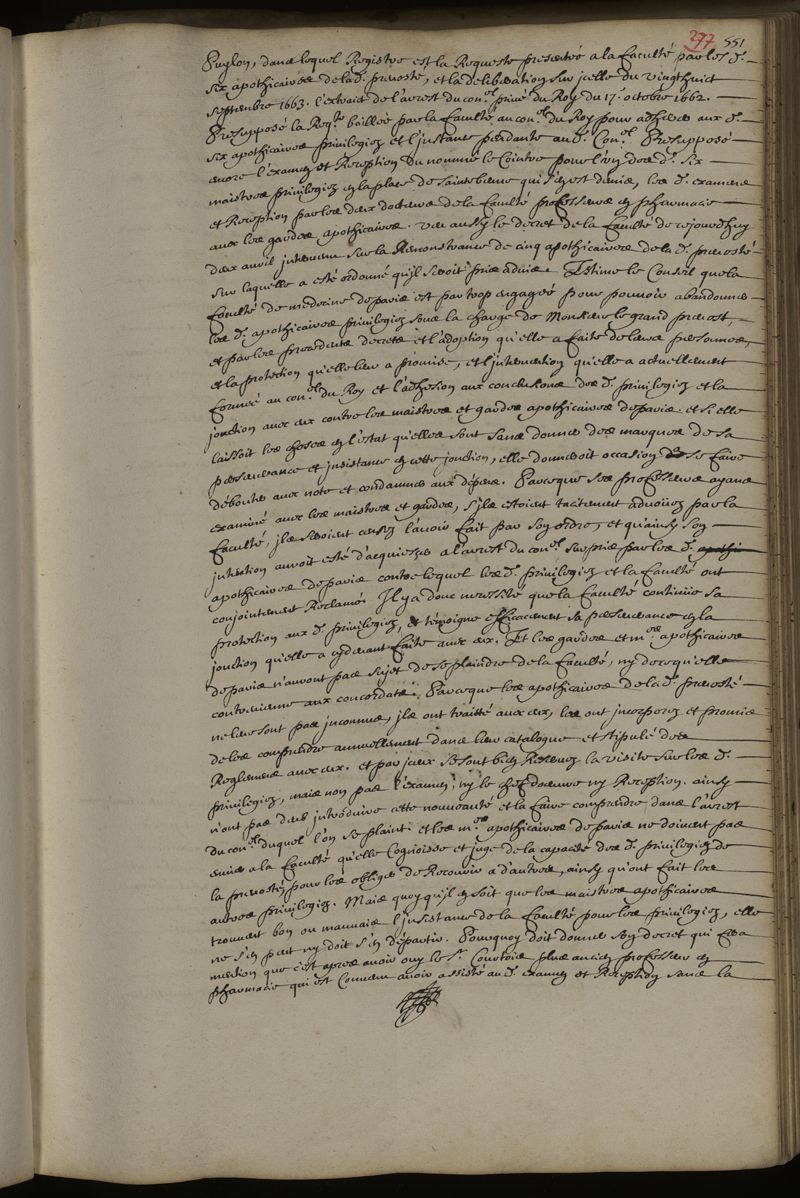 277 551
Puylon, dans lequel Registre est la Requeste presentée a la faculté par les d.
six apothicaires de lad. prevosté, et la deliberation sur jcelle du vingthuict
septembre 1663. l'extraict de l'arrest du con.el privé du Roy du 17.e octobre 1662.
Presupposé la Req.te baillée par la faculté au con.el du Roy pour adherer aux d.
six apothicaires privilegiez et l'jnstance pendante aud. Con.el Presupposé
encore l'examen et Reception du nommé le Cointre pour l'un des d. six
maistres privilegiez en la place de sainte beuve qui s'en est demis, les d. examens
et Reception par les deux docteurs de la faculté professeurs en pharmacie
avec les gardes apothicaires. veu aussy le decret de la faculté de ce jourd'huy
deux avril jntervenu sur la Remonstrance de cinq apothicaires de la d. prevosté
sur laquelle a esté ordonné qu'jl seroit pris advis. Estime le Conseil que la
faculté de medecine de paris est par trop engagée pour pouvoir abandonner
les d. apothicaires privilegiez sous la charge de Monsieur le grand prevost,
et par les precedents decrets et l'adoption qu'elle a faite de leurs personnes,
et la protection qu'elle leur a promise, et l'jntervention qu'elle a actuellement
formée au con.el du Roy et l'adhesion aux conclusions des d. privilegiez et la
jonction avec eux contre les maistres et gardes apothicaires de paris. et si elle
laissoit les choses en l'estat qu'elles sont sans donner des marques de sa
perseverance et jnsistance en cette jonction, elle donneroit occasion de se faire
débouter avec note et condamner aux dépens. Parceque ses professeurs ayans
examiné avec les maistres et gardes, s'jls estoient tacitement advouez par la
faculté, jls seroient censez l'avoir fait par son ordre, et qu'ainsy son
jntention auroit esté d'acquiescer a l'arrest du con.el surpris par les d. apothi
apothicaires de paris contre lequel les d. privilegiez et la faculté ont
conjointement Reclamé. Il y a donc necessité que la faculté continüe sa
protection aux d. privilegiez, et témoigne efficacement sa perseverance en la
jonction qu'elle a cydevant faite avec eux. Et les gardes et m.es apothicaires
de paris n'auront pas sujet de se plaindre de la faculté, ny de ce qu'elle
contrevienne aux concordats. Parceque les apothicaires de la d. prevosté
ne leur sont pas jnconnus, jls ont traitté avec eux, les ont jncorporez et promis
de les comprendre annuellement dans leur catalogue et stipulé des
Reglemens avec eux. et par jceux se sont bien Reservez la visite sur les d.
privilegiez, mais non pas l'examen, ny le chef d'œuvre ny Reception. ainsy
n'ont pas deub jntroduire cette nouveauté et la faire comprendre dans l'arrest
du con.el duquel l'on se plaint. et les m.es apothicaires de paris ne doivent pas
envier a la faculté qu'elle Cognoisse et juge de la capacité des d. privilegiez de
la prevosté, pour les obliger de Recourir a d'autres, ainsy qu'ont fait les
autres privilegiez. Mais quoy qu'jl en soit que les maistres apothicaires
trouvent bon ou mauvais l'jnsistance de la faculté pour les privilegiez, elle
ne s'en peut ny doit s'en départir. Pourquoy doit donner son decret qui fera
mention que c'est apres avoir ouy le s.r Courtois plus ancien professeur en
pharmacie qui est Convenu avoir assisté au d. examen et Reception sans la